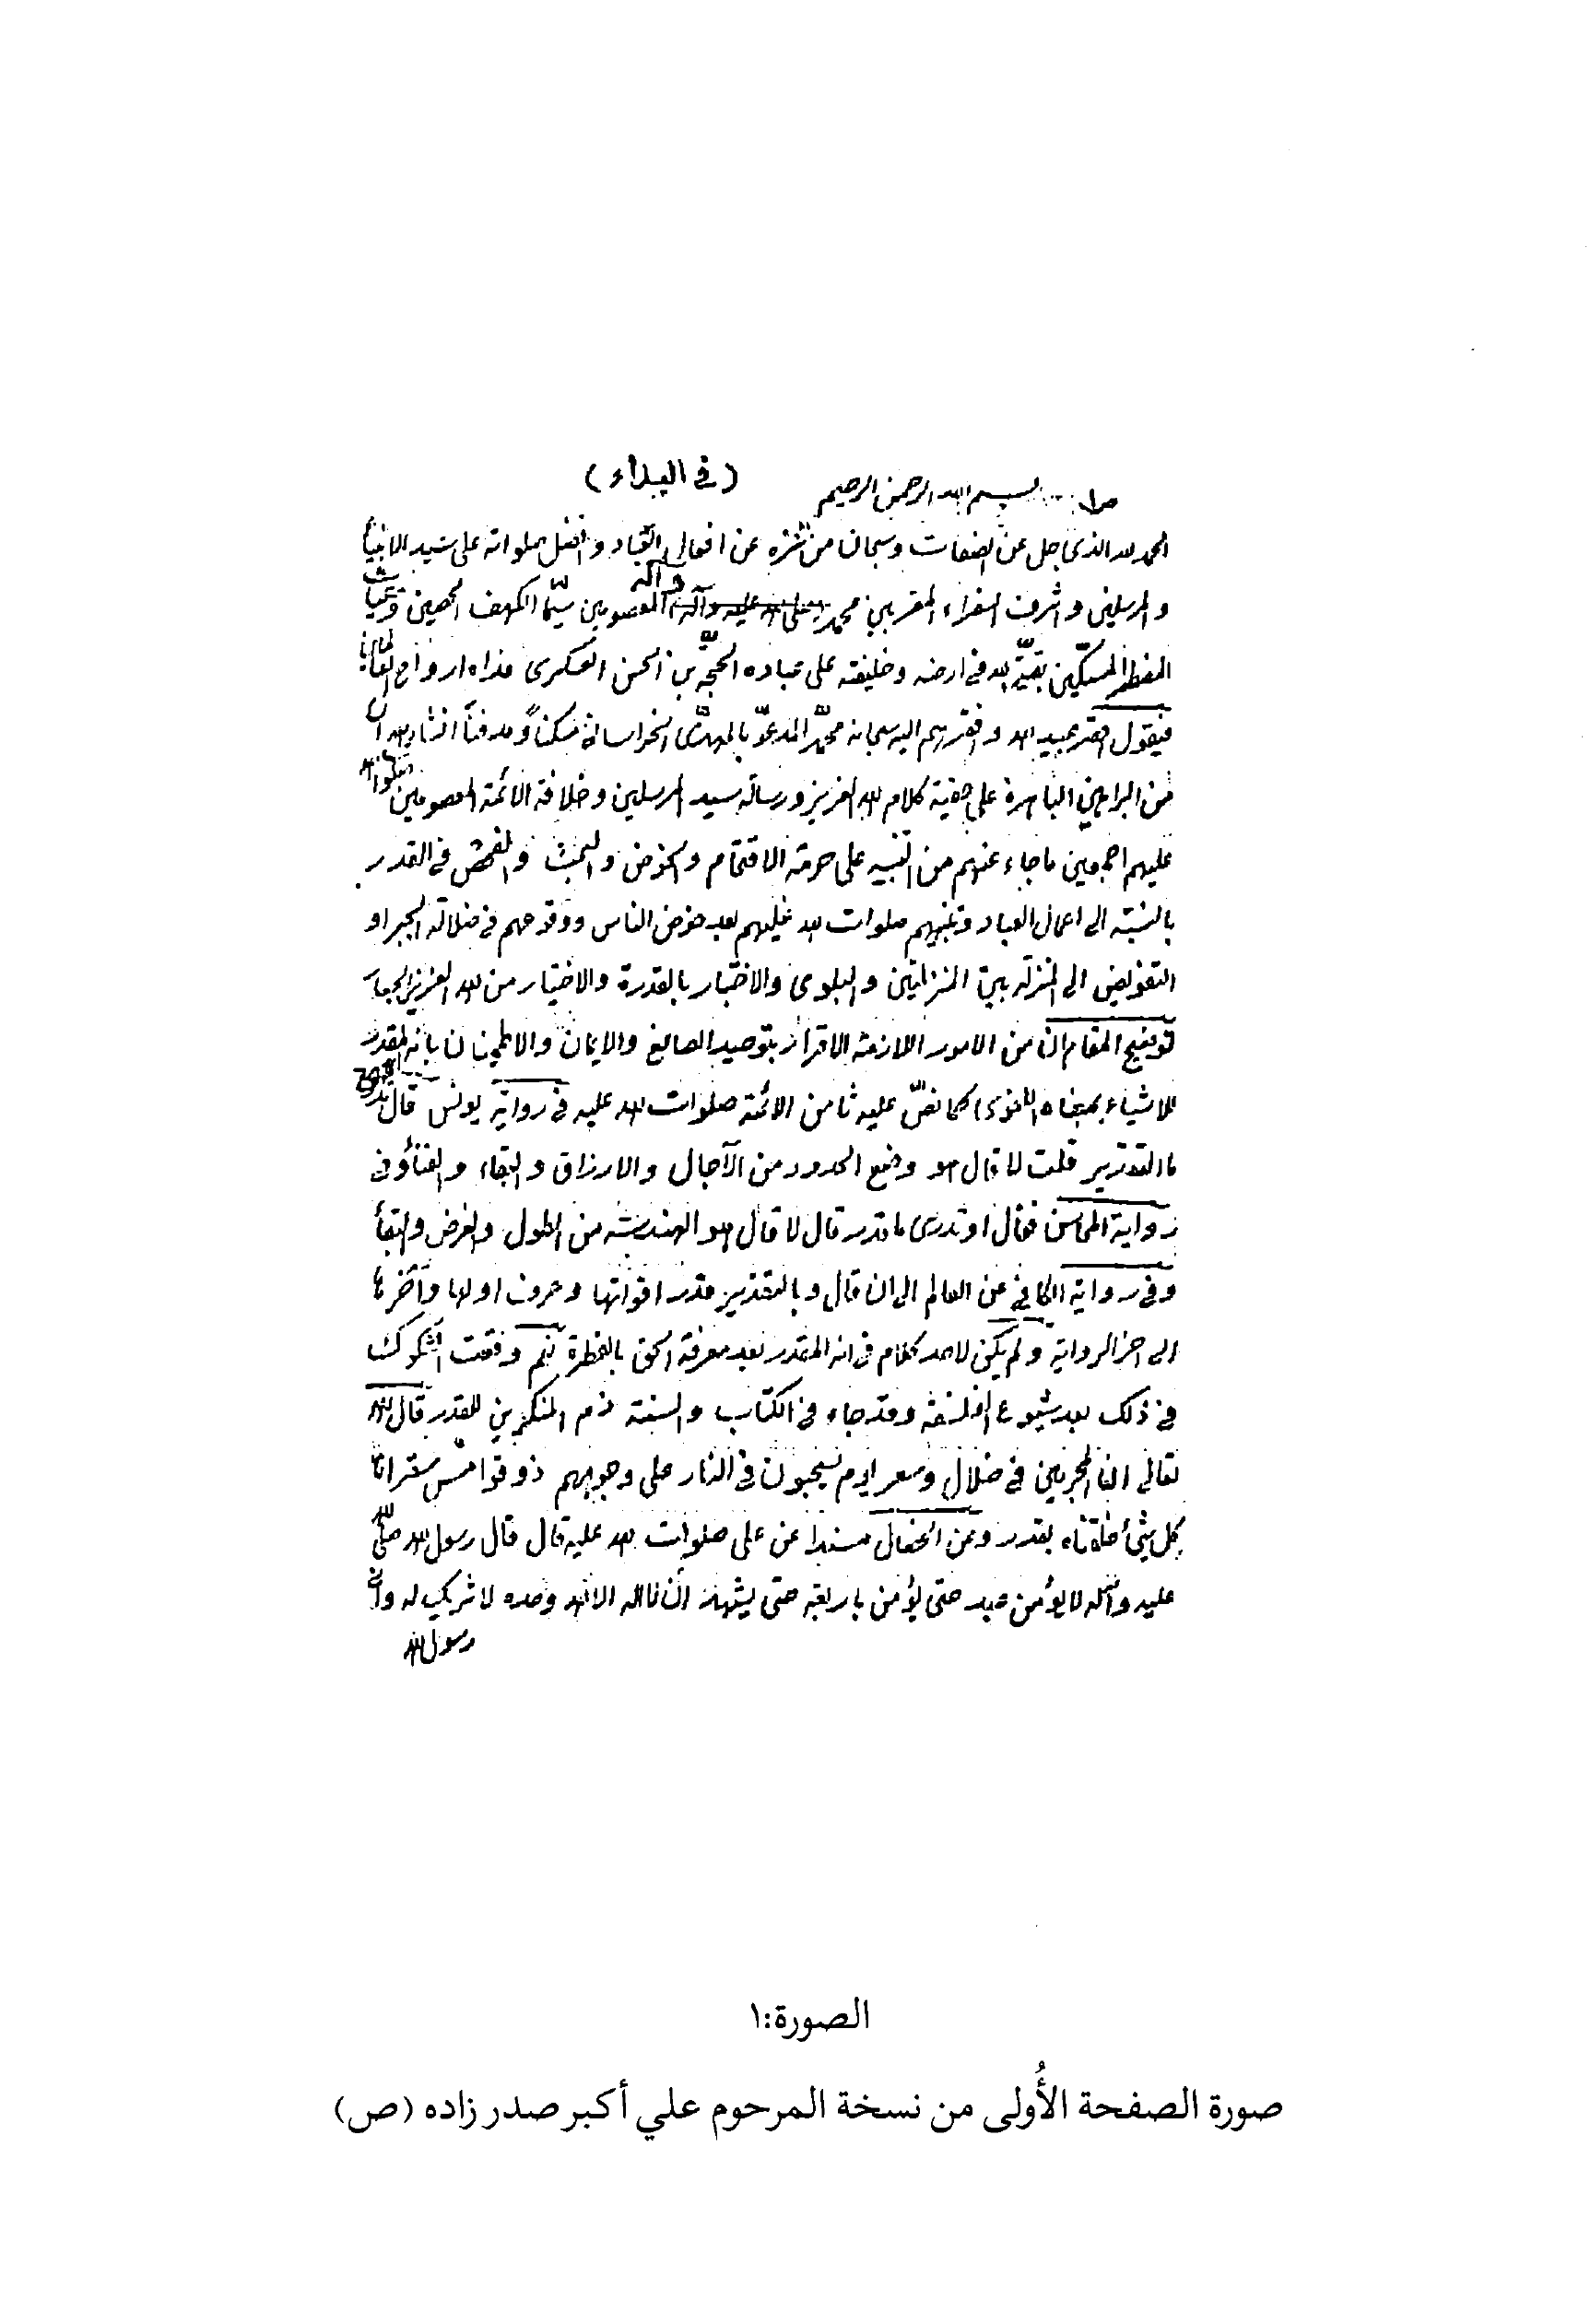 (في البداء)
بسم الله الرحمن الرحيم
الحمد لله الذي جل عن الصفات وسبحان من تنزه عن افعال العباد وافضل صلواته على سيد الانبياء
والمرسلين واشرف السفراء المقربين محمد وآله المعصومين سيّما الكهف الحصين وغياث
المضطر المستكين بقيّة الله في ارضه وخليفته على عباده الحجّة بن الحسن العسكرى فداه ارواح العالمين
فيقول احقر عبيد الله وافقرهم اليه سبحانه محمّد المدعوّ بالمهدى الخراسانى مسكناً ومدفناً انشاء الله ان
من البراهين الباهرة على حقية كلام الله العزيز ورسالة سيد المرسلين وخلافة الائمة المعصومين صلوات الله
عليهم اجمعين ما جاء عنهم من التنبيه على حرمة الاقتحام والخوض والبحث والفحص في القدر
بالنسبة الى اعمال العباد وتنبيههم صلوات الله عليهم بعد خوض الناس ووقوعهم في ضلالة الجبر او
التفويض الى المنزلة بين المنزلتين والبلوى والاختبار بالقدرة والاختيار من الله العزيز الجبار
توضيح المقام ان من الامور اللازمة الاقرار بتوحيد الصانع والايمان والاطمينان بانه المقدر
للاشياء بمعناه اللغوى كما نصّ عليه ثامن الائمة صلوات الله عليه في رواية يونس قال تدري
ما التقدير قلت لا قال هو وضع الحدود من الآجال والارزاق والبقاء والفناء وفي
رواية المحاسن فقال اوتدرى ما قدر قال لا قال هو الهندسة من الطول والعرض والبقاء
وفي رواية الكافي عن العالم الى ان قال وبالتقدير قدر اقواتها وعرف اولها وآخرها
الى اخر الرواية ولم يكن لاحد كلام في انه المقدر بعد معرفة الحق بالفطرة نعم وقعت الشكوك
في ذلك بعد شيوع الفلسفة وقد جاء في الكتاب والسنة ذم المنكرين للقدر قال الله
تعالى ان المجرمين في ضلال وسعر يوم يسحبون في النار على وجوههم ذوقوا مس سقر انا
كل شئ خلقناه بقدر وعن الخصال مسندا عن على صلوات الله عليه قال قال رسول الله صلى الله
عليه وآله لا يؤمن عبد حتى يؤمن باربعة حتى يشهد ان لا اله الا الله وحده لا شريك له وانى
رسول الله
الصورة:١
صورة الصفحة الأُولى من نسخة المرحوم علي أكبر صدر زاده (ص)